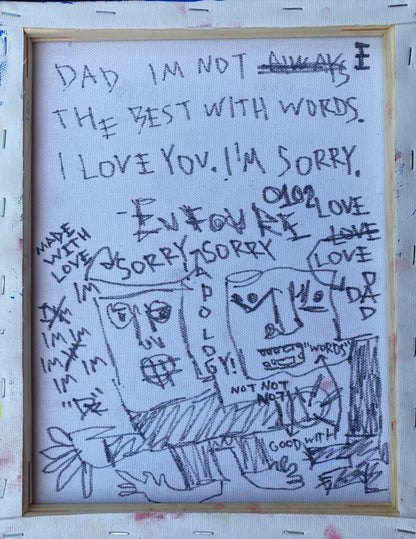 DAD IM NOT ALWAYS
THE BEST WITH WORDS.
I LOVE YOU. I'M SORRY.
0102
LOVE
LOVE
LOVE
DAD
MADE
WITH
LOVE
SORRY SORRY
APOLOGY!
IM
IM
IM IM
IM IM
"WORDS"
NOT NOT
NOT
GOOD WITH